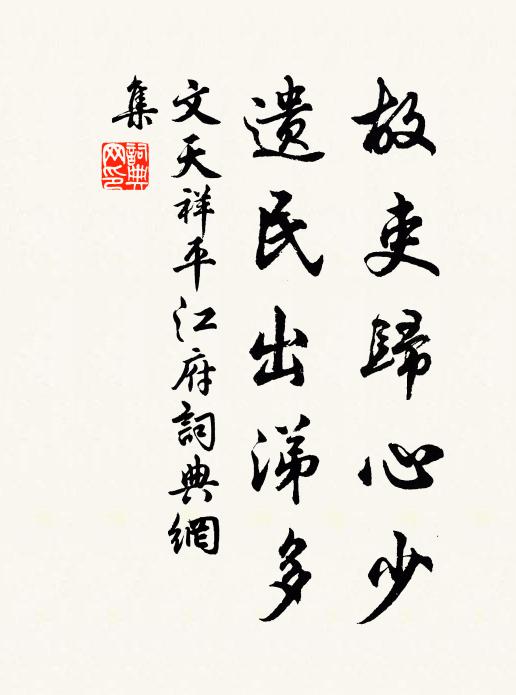 故吏歸心少
遺民出涕多
文天祥平江府詞典網
集
詞典
网印